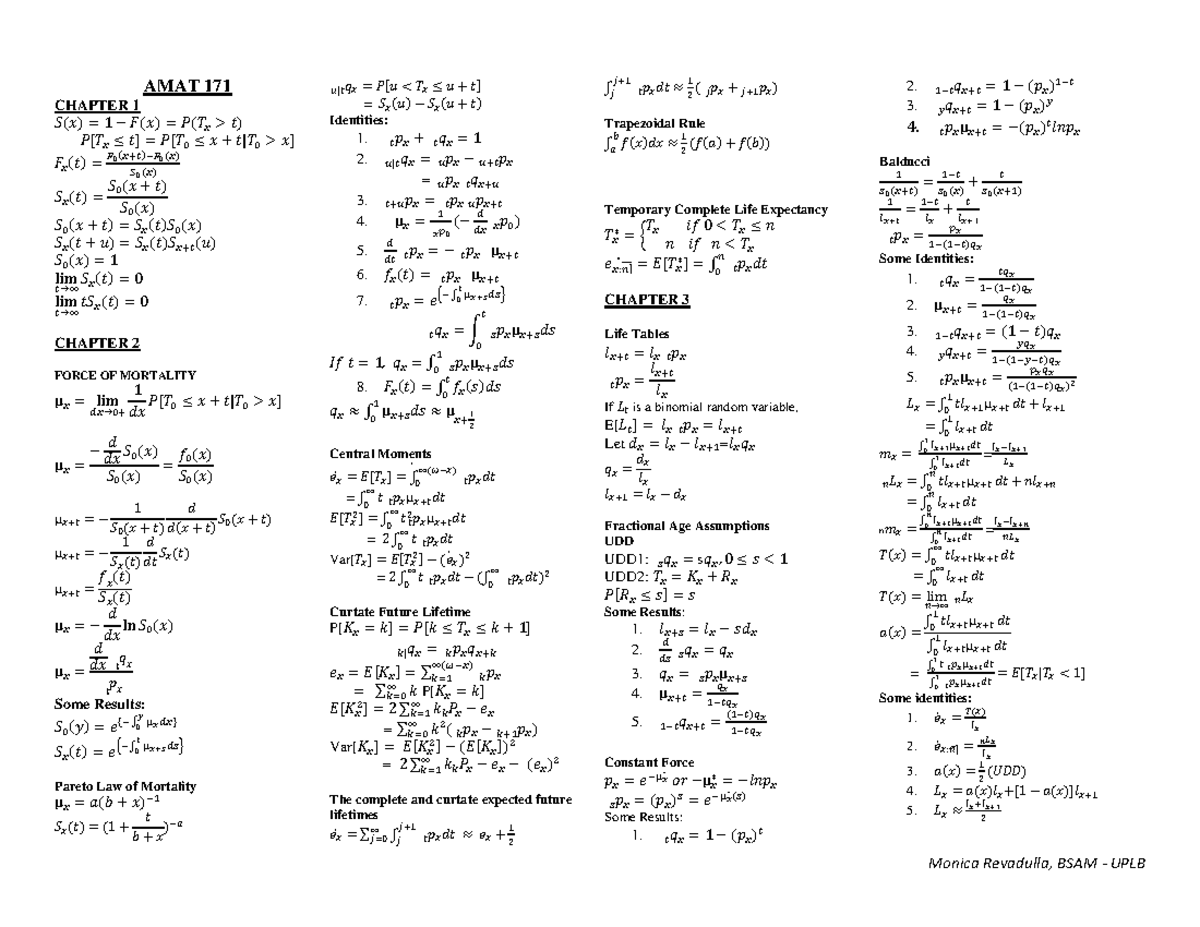 AMAT 171
CHAPTER 1
S(x) = 1 − F(x) = P(Tₓ > t)
P[Tₓ ≤ t] = P[T₀ ≤ x + t|T₀ > x]
Fₓ(t) = (F₀(x+t)−F₀(x))/S₀(x)
Sₓ(t) = S₀(x + t)/S₀(x)
S₀(x + t) = Sₓ(t)S₀(x)
Sₓ(t + u) = Sₓ(t)Sₓ₊ₜ(u)
S₀(x) = 1
lim t→∞ Sₓ(t) = 0
lim t→∞ tSₓ(t) = 0
CHAPTER 2
FORCE OF MORTALITY
μₓ = lim dx→0+ 1/dx P[T₀ ≤ x + t|T₀ > x]
μₓ = (−d/dx S₀(x))/S₀(x) = f₀(x)/S₀(x)
μₓ₊ₜ = − 1/S₀(x + t) d/d(x + t) S₀(x + t)
μₓ₊ₜ = − 1/Sₓ(t) d/dt Sₓ(t)
μₓ₊ₜ = fₓ(t)/Sₓ(t)
μₓ = − d/dx ln S₀(x)
μₓ = (d/dx ₜqₓ)/ₜpₓ
Some Results:
S₀(y) = e^{−∫₀^y μₓdx}
Sₓ(t) = e^{−∫₀^t μₓ₊ₛds}
Pareto Law of Mortality
μₓ = a(b + x)⁻¹
Sₓ(t) = (1 + t/(b + x))^−a
ᵤ|ₜqₓ = P[u < Tₓ ≤ u + t]
= Sₓ(u) − Sₓ(u + t)
Identities:
1. ₜpₓ + ₜqₓ = 1
2. ᵤ|ₜqₓ = ᵤpₓ − ᵤ₊ₜpₓ
= ᵤpₓ ₜqₓ₊ᵤ
3. ₜ₊ᵤpₓ = ₜpₓ ᵤpₓ₊ₜ
4. μₓ = 1/ₓp₀ (− d/dx ₓp₀)
5. d/dt ₜpₓ = − ₜpₓ μₓ₊ₜ
6. fₓ(t) = ₜpₓ μₓ₊ₜ
7. ₜpₓ = e^{−∫₀^t μₓ₊ₛds}
ₜqₓ = ∫₀^t ₛpₓμₓ₊ₛds
If t = 1, qₓ = ∫₀^1 ₛpₓμₓ₊ₛds
8. Fₓ(t) = ∫₀^t fₓ(s)ds
qₓ ≈ ∫₀^1 μₓ₊ₛds ≈ μ_{x+1/2}
Central Moments
ėₓ = E[Tₓ] = ∫₀^{∞(ω−x)} ₜpₓdt
= ∫₀^∞ t ₜpₓμₓ₊ₜdt
E[Tₓ²] = ∫₀^∞ t² ₜpₓμₓ₊ₜdt
= 2∫₀^∞ t ₜpₓdt
Var[Tₓ] = E[Tₓ²] − (ėₓ)²
= 2∫₀^∞ t ₜpₓdt − (∫₀^∞ ₜpₓdt)²
Curtate Future Lifetime
P[Kₓ = k] = P[k ≤ Tₓ ≤ k + 1]
ₖ|qₓ = ₖpₓqₓ₊ₖ
eₓ = E[Kₓ] = ∑_{k=1}^{∞(ω−x)} ₖpₓ
= ∑_{k=0}^∞ k P[Kₓ = k]
E[Kₓ²] = 2∑_{k=1}^∞ kₖPₓ − eₓ
= ∑_{k=0}^∞ k²(ₖpₓ − ₖ₊₁pₓ)
Var[Kₓ] = E[Kₓ²] − (E[Kₓ])²
= 2∑_{k=1}^∞ kₖPₓ − eₓ − (eₓ)²
The complete and curtate expected future
lifetimes
ėₓ = ∑_{j=0}^∞ ∫_j^{j+1} ₜpₓdt ≈ eₓ + 1/2
∫_j^{j+1} ₜpₓdt ≈ 1/2(ⱼpₓ + ⱼ₊₁pₓ)
Trapezoidal Rule
∫_a^b f(x)dx ≈ 1/2(f(a) + f(b))
Temporary Complete Life Expectancy
Tₓ* = { Tₓ if 0 < Tₓ ≤ n
n if n < Tₓ
ė_{x:n̅|} = E[Tₓ*] = ∫₀^n ₜpₓdt
CHAPTER 3
Life Tables
lₓ₊ₜ = lₓ ₜpₓ
ₜpₓ = lₓ₊ₜ/lₓ
If Lₜ is a binomial random variable,
E[Lₜ] = lₓ ₜpₓ = lₓ₊ₜ
Let dₓ = lₓ − lₓ₊₁=lₓqₓ
qₓ = dₓ/lₓ
lₓ₊₁ = lₓ − dₓ
Fractional Age Assumptions
UDD
UDD1: ₛqₓ = sqₓ, 0 ≤ s < 1
UDD2: Tₓ = Kₓ + Rₓ
P[Rₓ ≤ s] = s
Some Results:
1. lₓ₊ₛ = lₓ − sdₓ
2. d/ds ₛqₓ = qₓ
3. qₓ = ₛpₓμₓ₊ₛ
4. μₓ₊ₜ = qₓ/(1−tqₓ)
5. ₁₋ₜqₓ₊ₜ = (1−t)qₓ/(1−tqₓ)
Constant Force
pₓ = e^{−μₓ*} or −μₓ* = −lnpₓ
ₛpₓ = (pₓ)^s = e^{−μₓ*(s)}
Some Results:
1. ₜqₓ = 1 − (pₓ)^t
2. ₁₋ₜqₓ₊ₜ = 1 − (pₓ)^{1−t}
3. _y qₓ₊ₜ = 1 − (pₓ)^y
4. ₜpₓμₓ₊ₜ = −(pₓ)^t lnpₓ
Balducci
1/s₀(x+t) = (1−t)/s₀(x) + t/s₀(x+1)
1/lₓ₊ₜ = (1−t)/lₓ + t/lₓ₊₁
ₜpₓ = pₓ/(1−(1−t)qₓ)
Some Identities:
1. ₜqₓ = tqₓ/(1−(1−t)qₓ)
2. μₓ₊ₜ = qₓ/(1−(1−t)qₓ)
3. ₁₋ₜqₓ₊ₜ = (1 − t)qₓ
4. _y qₓ₊ₜ = yqₓ/(1−(1−y−t)qₓ)
5. ₜpₓμₓ₊ₜ = pₓqₓ/(1−(1−t)qₓ)²
Lₓ = ∫₀^1 tlₓ₊₁μₓ₊ₜ dt + lₓ₊₁
= ∫₀^1 lₓ₊ₜ dt
mₓ = (∫₀^1 lₓ₊₁μₓ₊ₜdt)/(∫₀^1 lₓ₊ₜdt) = (lₓ−lₓ₊₁)/Lₓ
ₙLₓ = ∫₀^n tlₓ₊ₜμₓ₊ₜ dt + nlₓ₊ₙ
= ∫₀^n lₓ₊ₜ dt
ₙmₓ = (∫₀^n lₓ₊ₜμₓ₊ₜdt)/(∫₀^n lₓ₊ₜdt) = (lₓ−lₓ₊ₙ)/ₙLₓ
T(x) = ∫₀^∞ tlₓ₊ₜμₓ₊ₜ dt
= ∫₀^∞ lₓ₊ₜ dt
T(x) = lim n→∞ ₙLₓ
a(x) = (∫₀^1 tlₓ₊ₜμₓ₊ₜ dt)/(∫₀^1 lₓ₊ₜμₓ₊ₜ dt)
= (∫₀^1 t ₜpₓμₓ₊ₜdt)/(∫₀^1 ₜpₓμₓ₊ₜdt) = E[Tₓ|Tₓ < 1]
Some identities:
1. ėₓ = T(x)/lₓ
2. ė_{x:n̅|} = ₙLₓ/lₓ
3. a(x) = 1/2 (UDD)
4. Lₓ = a(x)lₓ+[1 − a(x)]lₓ₊₁
5. Lₓ ≈ (lₓ+lₓ₊₁)/2
Monica Revadulla, BSAM - UPLB